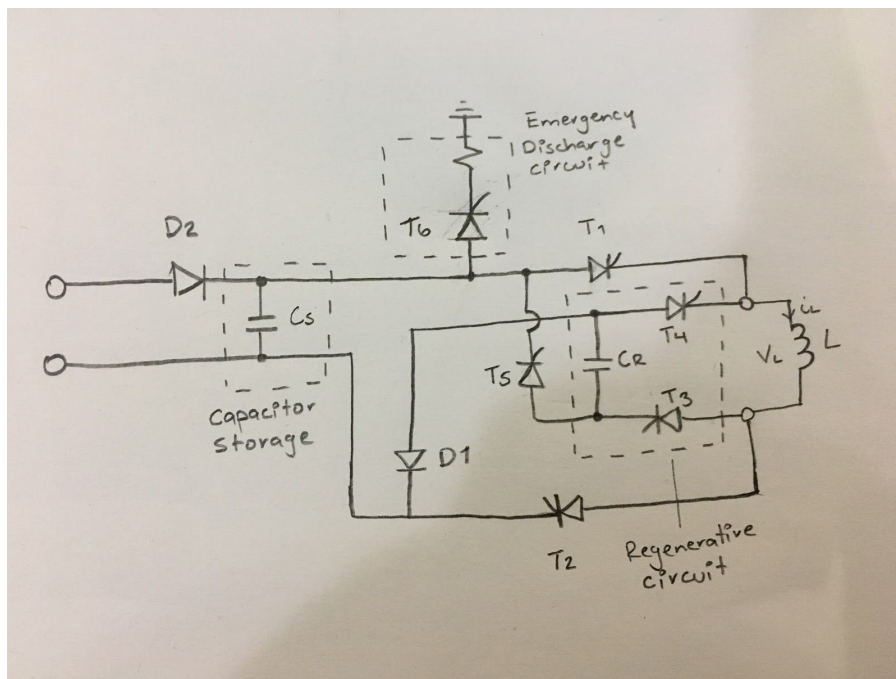 Emergency
Discharge
circuit
D2
T6
T1
Cs
iL
T4
L
VL
T5
CR
T3
Capacitor
Storage
D1
T2
Regenerative
circuit